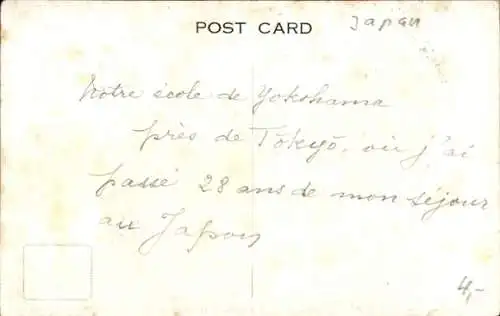 POST CARD
Japan
Notre école de Yokohama
près de Tōkyō, où j'ai
passé 28 ans de mon séjour
au Japon
4,-